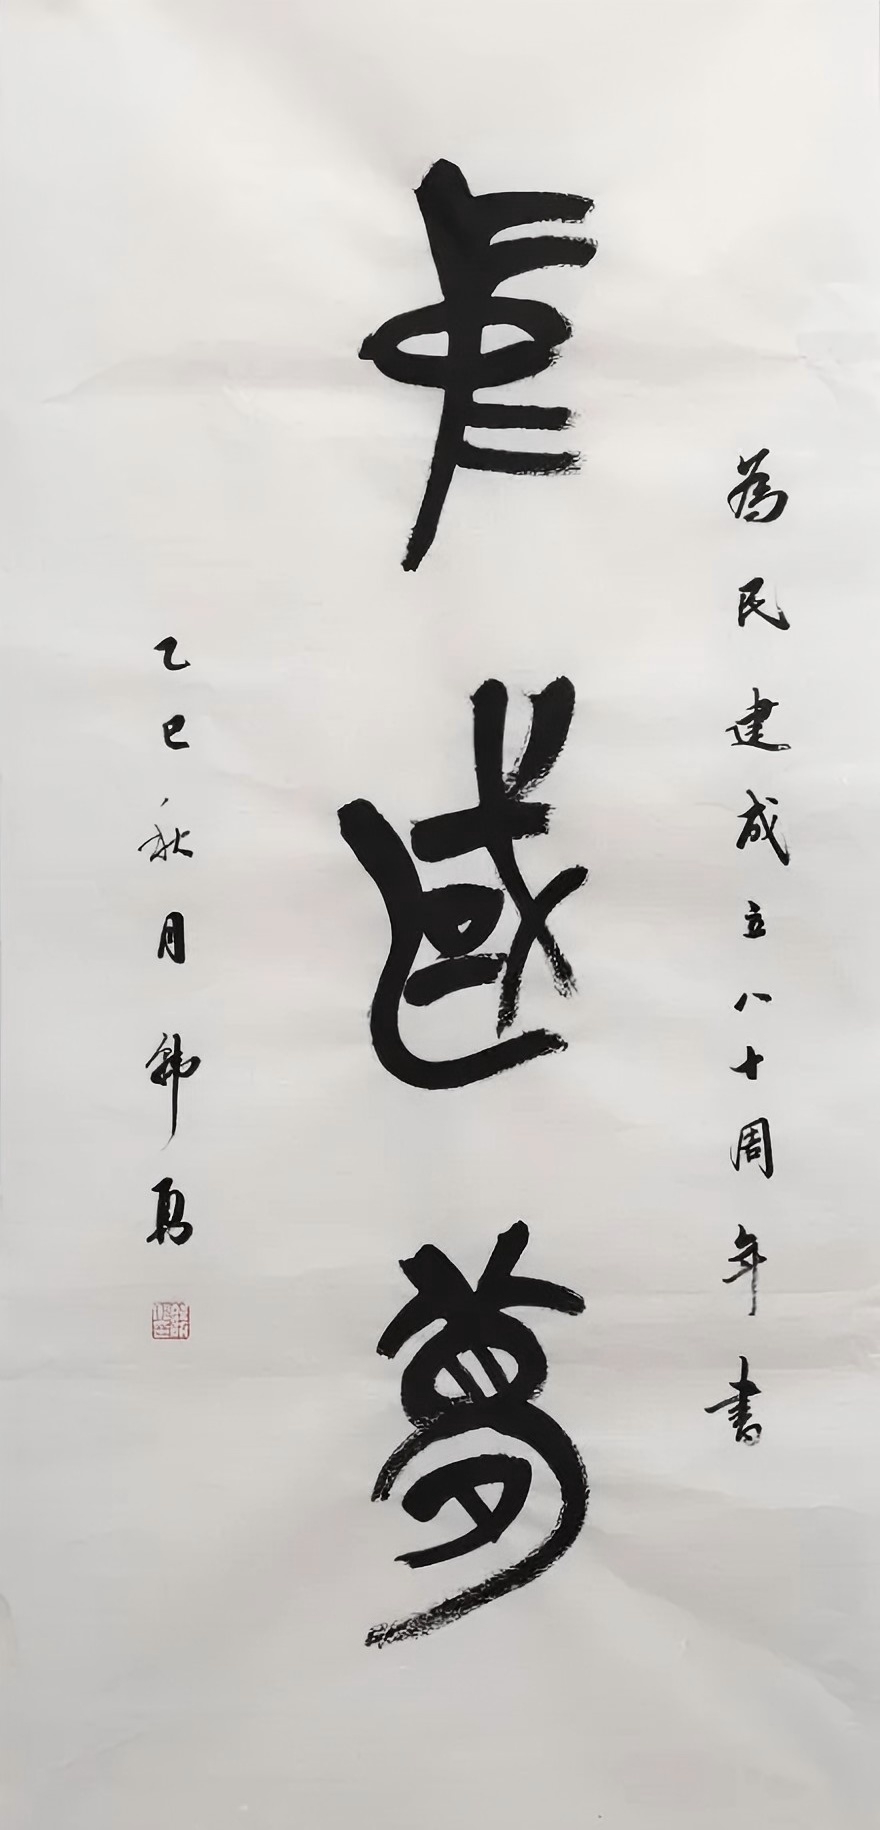 為民建成立八十周年書
中國夢
乙巳秋月